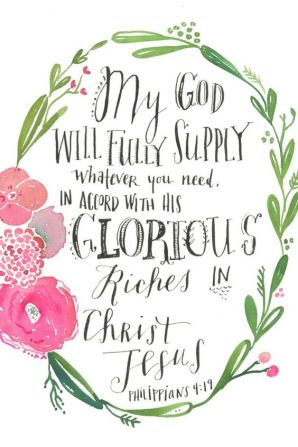 My God
Will Fully Supply
Whatever you need,
in accord with his
Glorious
Riches in
Christ
Jesus
Philippians 4:19